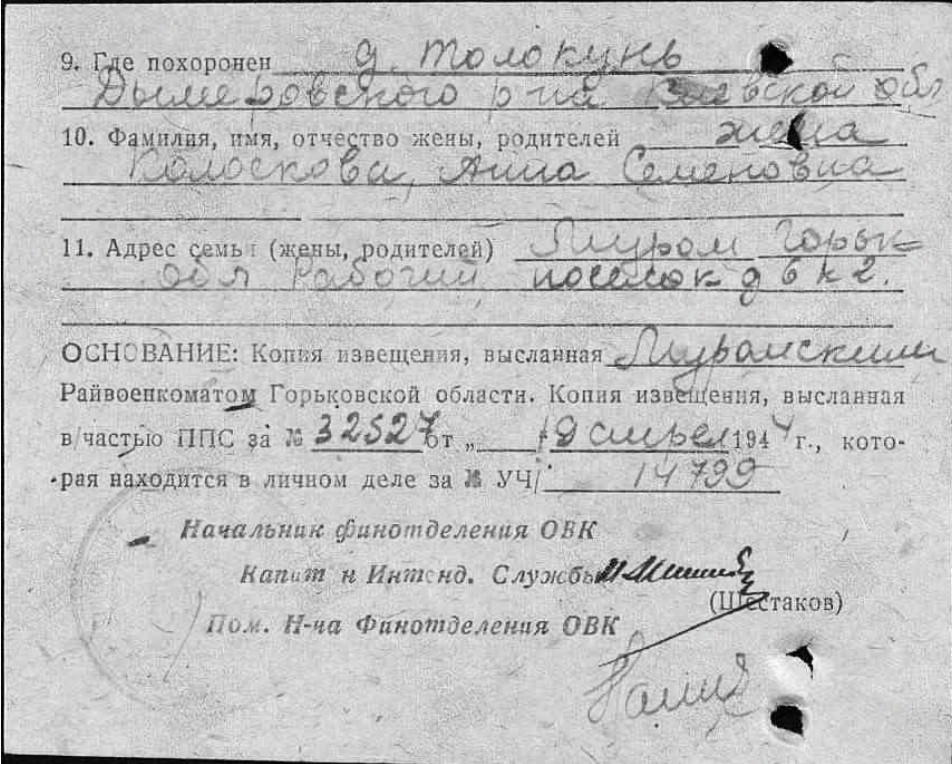 9. Где похоронен д. Толокунь
Дымеровского р-на Киевской обл
10. Фамилия, имя, отчество жены, родителей жена
Колоскова, Анна Семеновна
11. Адрес семьи (жены, родителей) Муром Горьк
обл Рабочий поселок д 6 к 2.
ОСНОВАНИЕ: Копия извещения, высланная Муромским
Райвоенкоматом Горьковской области. Копия извещения, высланная
в/частью ППС за № 32527 от „ 1944 г., кото-
рая находится в личном деле за № УЧ/ 14799
Начальник финотделения ОВК
Капитан Интенд. Службы
(Шестаков)
Пом. Н-ча Финотделения ОВК